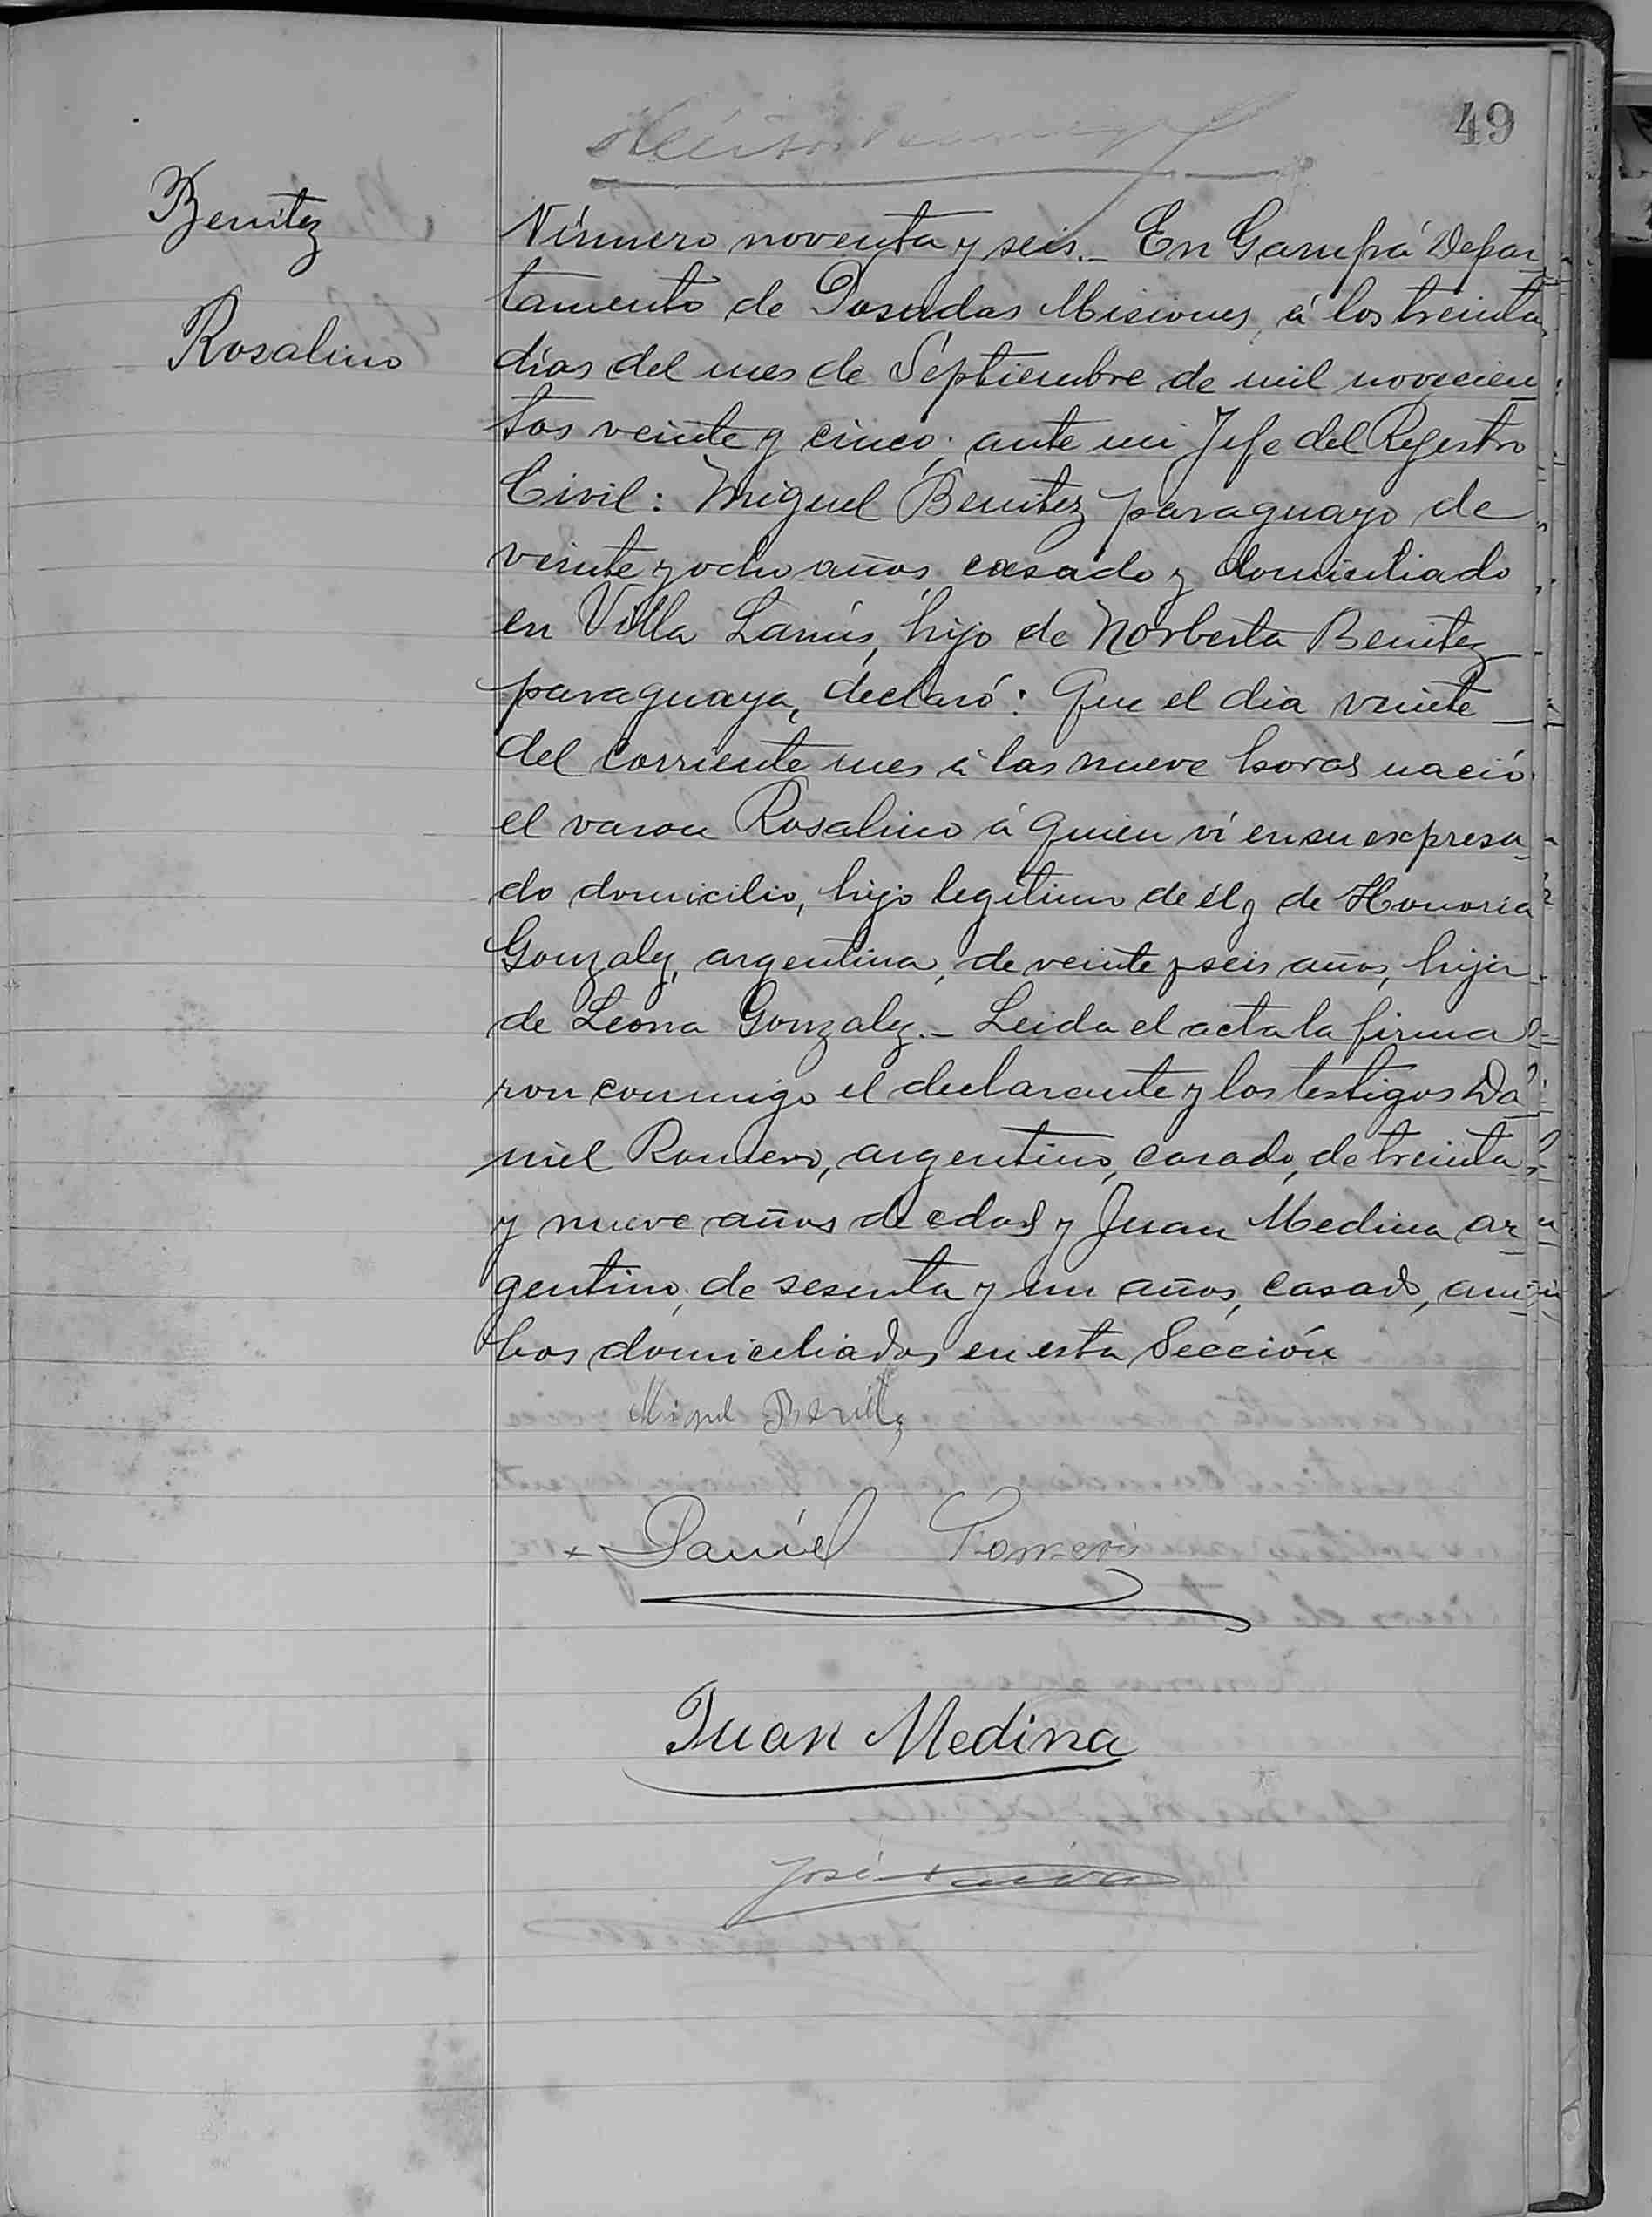 49
Benitez
Rosalino
Número noventa y seis._ En Garupá Depar
tamento de Posadas Misiones, á los treinta
días del mes de Septiembre de mil novecien
tos veinte y cinco; ante mi Jefe del Registro
Civil: Miguel Benitez paraguayo de
veinte y ocho años, casado y domiciliado
en Villa Lanús, hijo de Norberta Benitez
paraguaya, declaró: Que el dia veinte
del corriente mes á las nueve horas nació
el varon Rosalino á quien ví en su expresa
do domicilio, hijo legítimo de él y de Honoria
Gonzalez, argentina, de veinte y seis años, hija
de Leona Gonzalez._ Leida el acta la firma
ron conmigo el declarante y los testigos Da
niel Romero, argentino, casado, de treinta
y nueve años de edad y Juan Medina ar
gentino, de sesenta y un años, casado, am
bos domiciliados en esta Sección
Miguel Benitez
Daniel Romero
Juan Medina
José